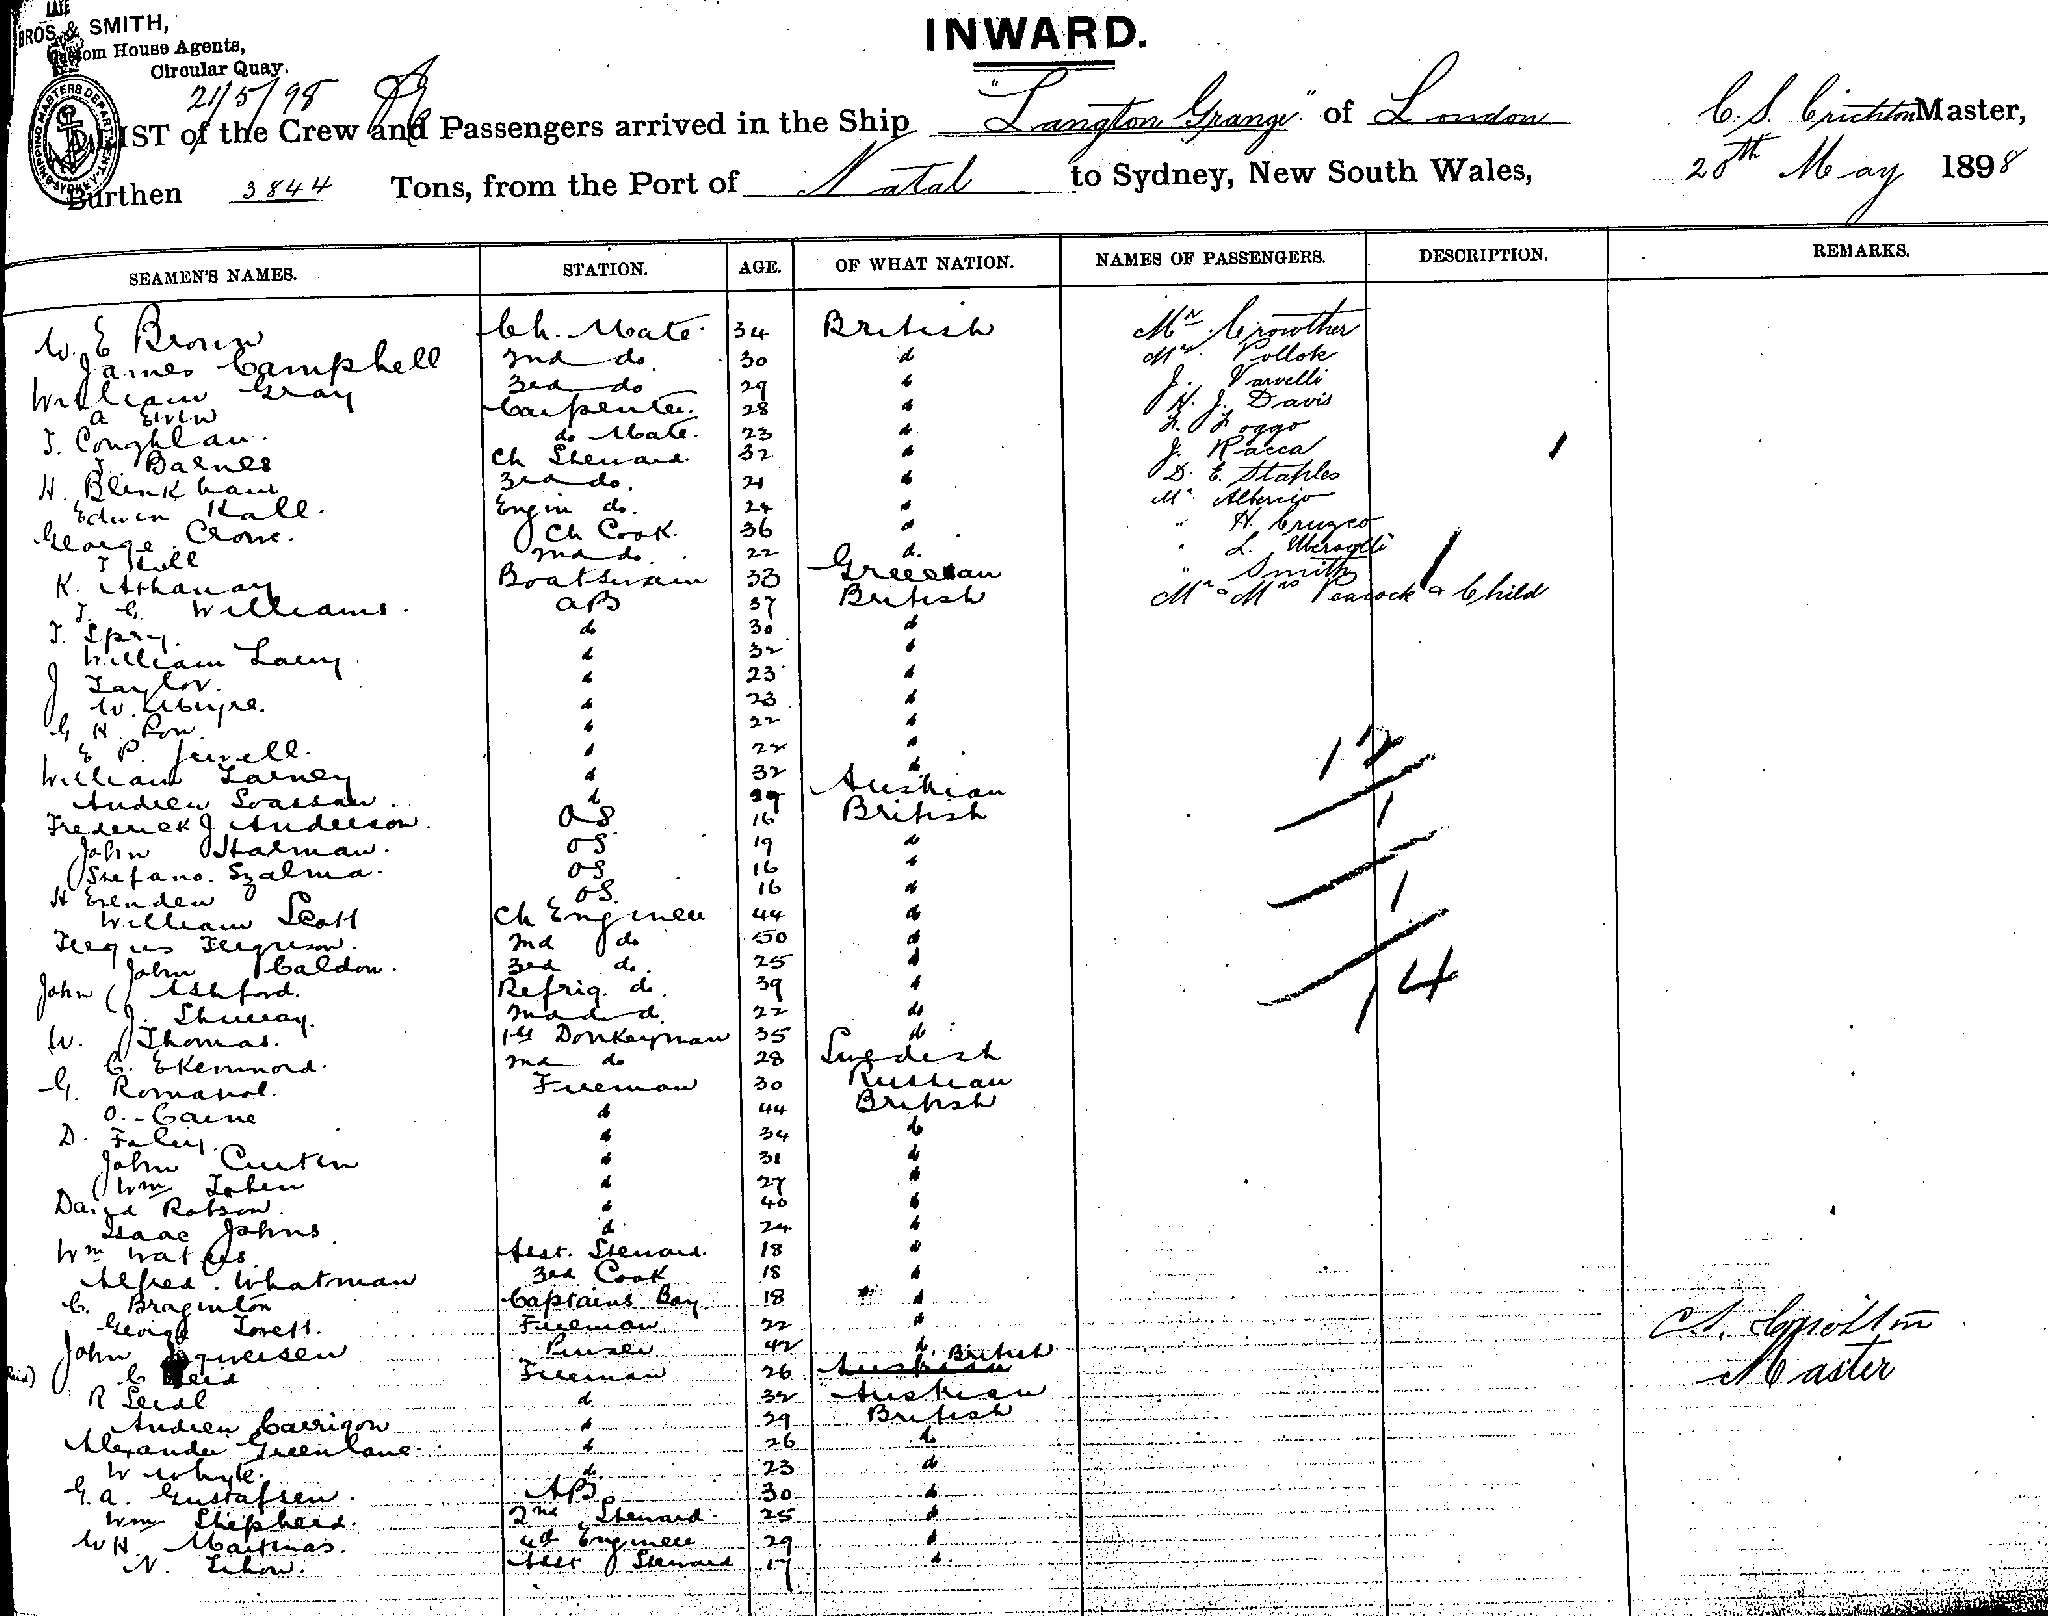 LATE
BROS. & SMITH,
Custom House Agents,
Circular Quay.
INWARD.
21/5/98
LIST of the Crew and Passengers arrived in the Ship "Langton Grange" of London C. S. Crichton Master,
Burthen 3844 Tons, from the Port of Natal to Sydney, New South Wales, 20th May 1898
SEAMEN'S NAMES. STATION. AGE. OF WHAT NATION. NAMES OF PASSENGERS. DESCRIPTION. REMARKS.
W. E Brown Ch. Mate 34 British Mr Crowther
James Campbell 2nd do 30 d Mr. Pollok
William Gray 3rd do 29 d J. Varvelli
A Carpenter 28 d H. J. Davis
T. Coughlan do Mate 23 d Z. Zoggo
J. Barnes Ch Steward 32 d J. Racca
H. Blinkham 3rd do. 21 d D. E. Staples
Edwin Hall. Engin do. 24 d Mr
George Crowe. Ch Cook 36 d " H. Cruzco
T Hull 2nd do 22 d. " L.
K. Boatswain 33 Grecian " Smith
T. C. Williams. AB 37 British Mr & Mrs Peacock & Child
T. Spry. d 30 d
William Lacey. d 32 d
J Taylor. d 23 d
W. d 23 d
G H. Row. d 22 d
E P. Jewell. d 22 d
William Larney d 32 d
Andrew d 29 Austrian
Frederick J Anderson. OS 16 British
John Stalman. OS 19 d
Stefano. Szalma. OS 16 d
H Evenden OS. 16 d
William Scott Ch Engineer 44 d
Fergus Ferguson. 2nd do 50 d
John Caldon. 3rd do. 25 d
John Ashford. Refrig. do 39 d
J. 2nd d 22 do
W. Thomas. 1st Donkeyman 35 d
C. 2nd do 28 Swedish
G. Fireman 30 Russian
O. Caine d 44 British
D. Foley d 34 d
John Curtin d 31 d
Wm Tohen d 27 d
David Robson. d 40 d
Isaac Johns d 24 d
Wm Waters Asst. Steward. 18 d
Alfred. Whatman 3rd Cook 18 d
C. Braginton Captains Boy 18 d
George Lovett. Fireman 22 d
John Purser 42 d.
C Reid Fireman 26 Austrian British
R Seidl d 32 Austrian
Andrew Carrigon d 39 British
Alexander Greenlane d 26 d
W Whyte. d 23 d
G. A. Gustafsen. AB 30 d
Wm Shepherd. 2nd Steward 25 d
W H Martinas. 4th Engineer 29 d
N. Asst Steward 17 d
12
1
1
14
C S. Crichton
Master